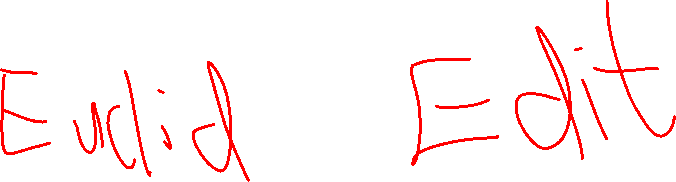 Euclid Edit